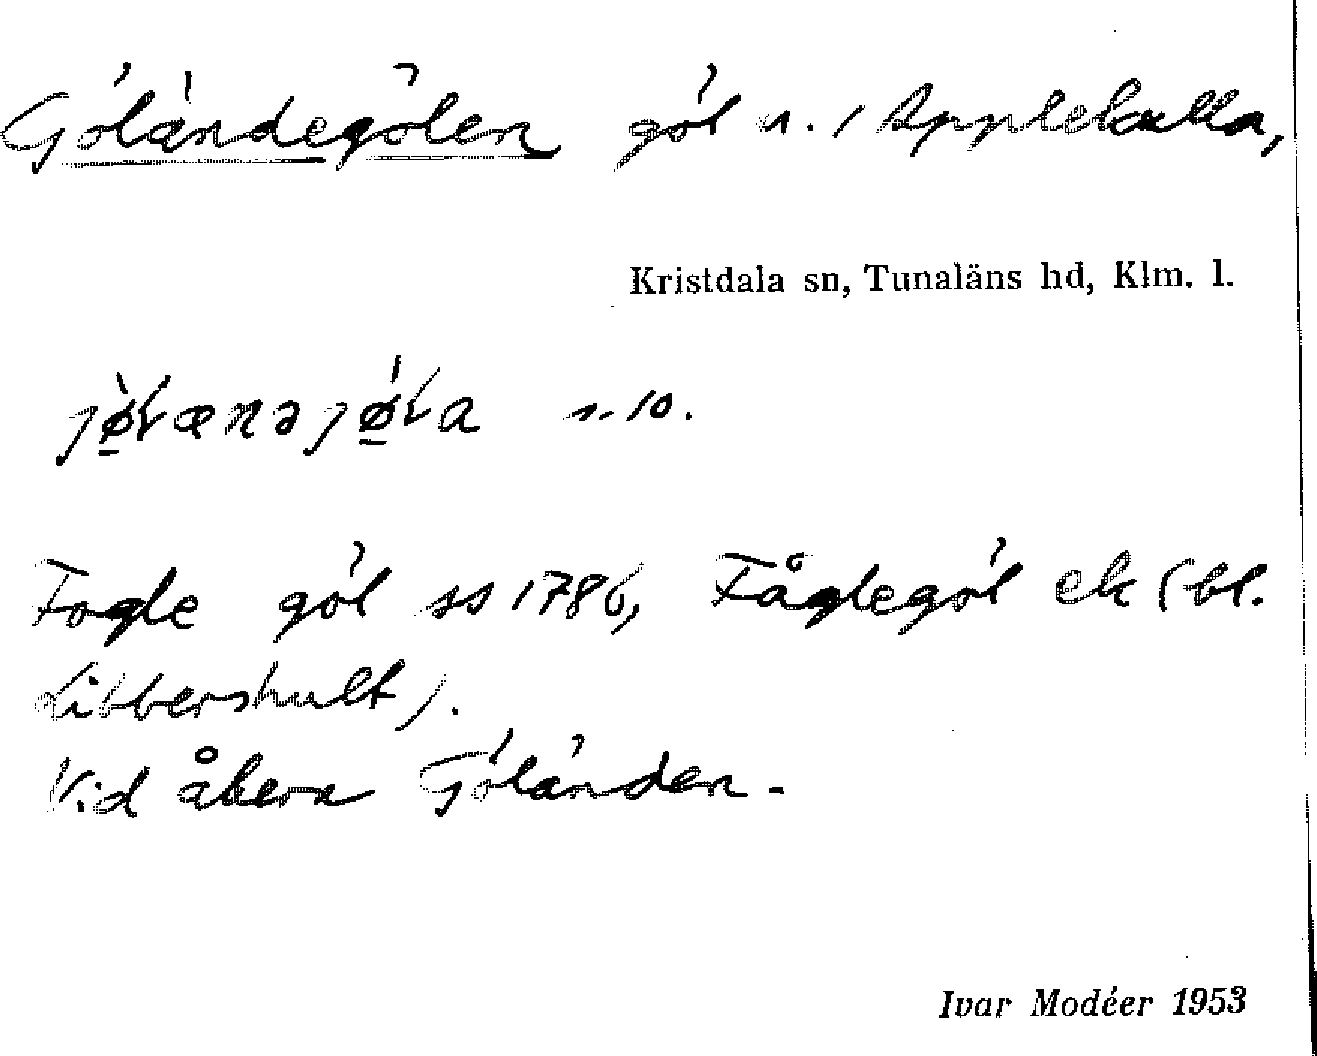 Göländegölen göl n. i Applekulla,
Kristdala sn, Tunaläns hd, Klm. l.
s. 10.
Fogle göl ss 1786, Fåglegöl ek (bl.
Libbershult).
Vid åkern Göländen.
Ivar Modéer 1953